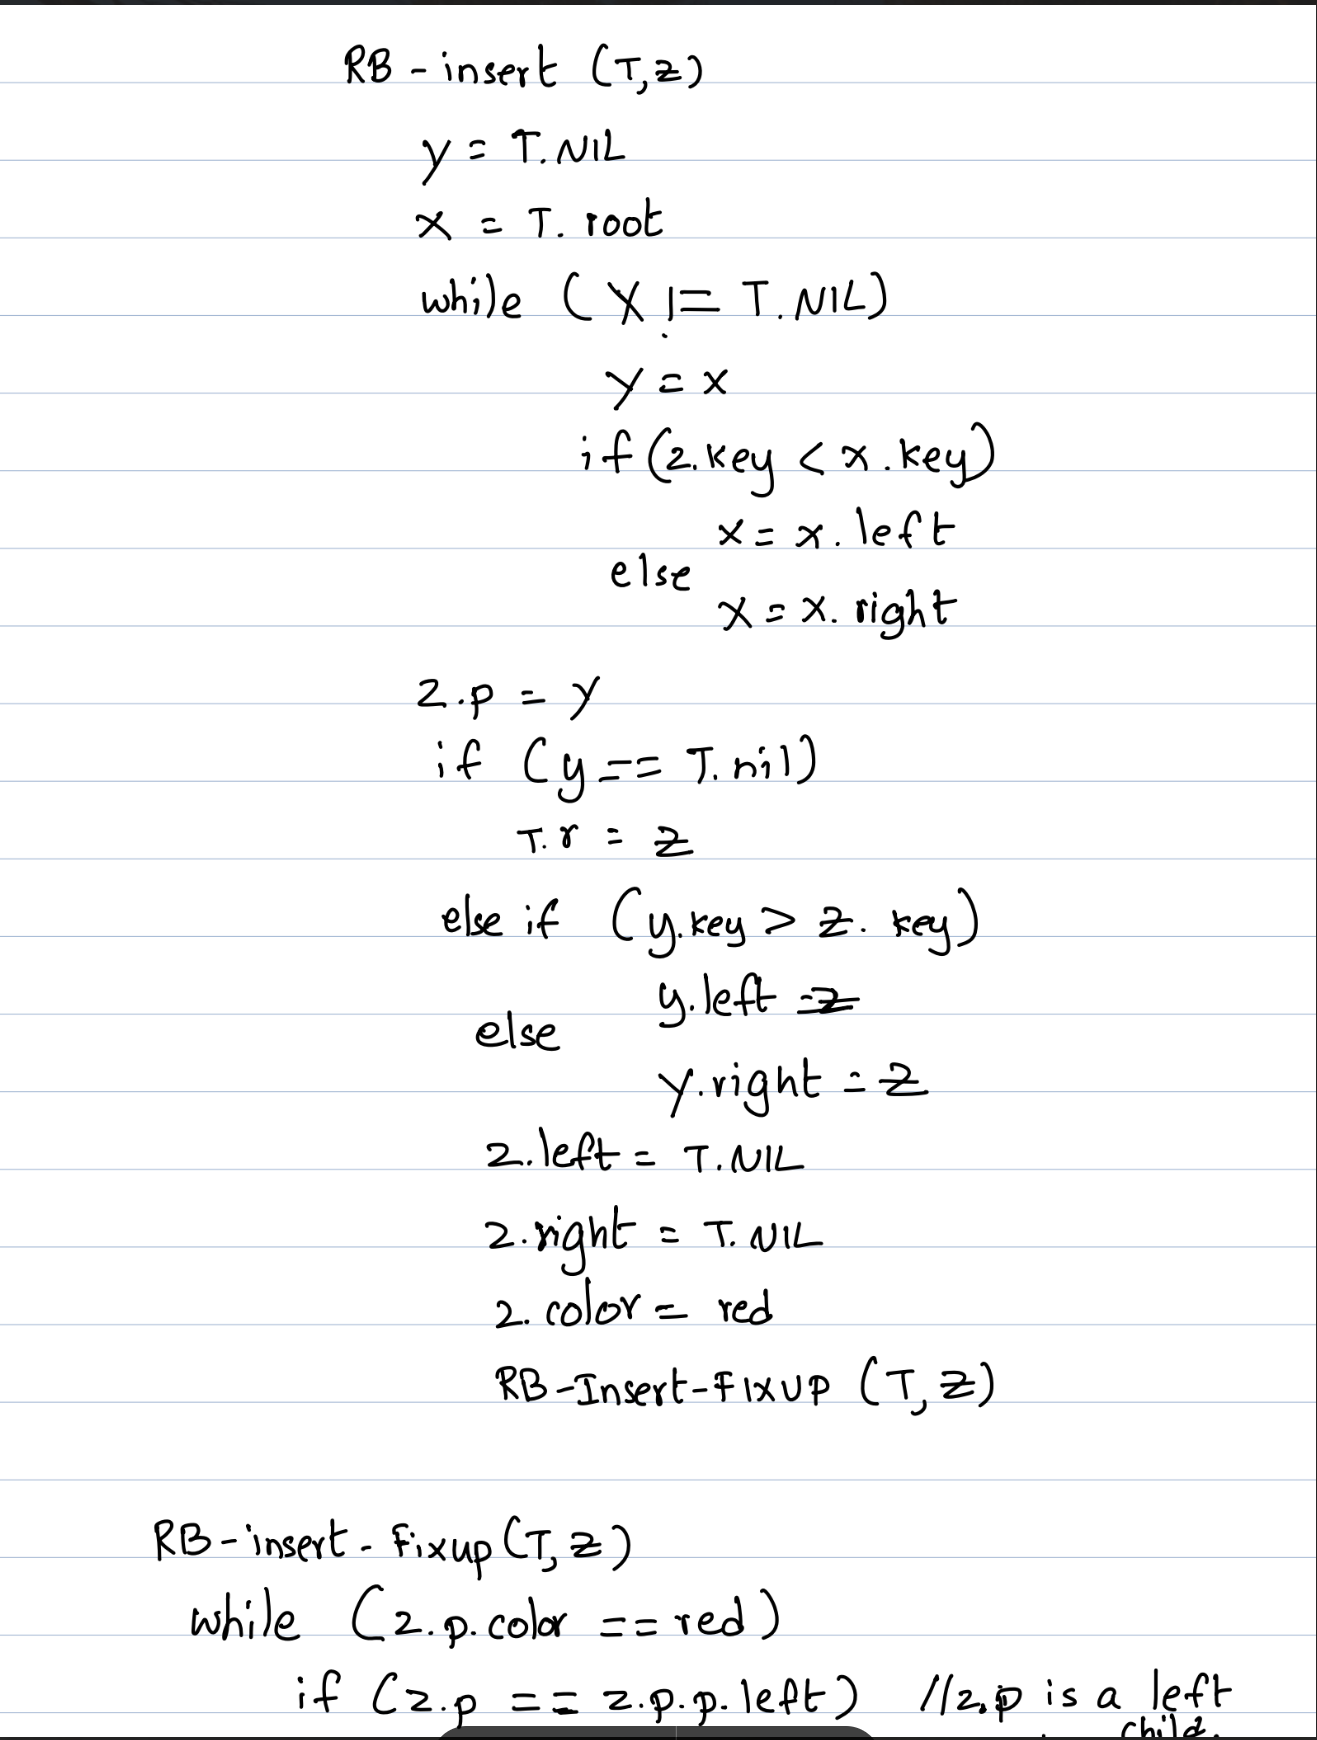 RB - insert (T,z)
y = T.NIL
x = T. root
while (x != T.NIL)
y = x
if (z.key < x.key)
x = x.left
else
x = x.right
z.p = y
if (y == T.nil)
T.r = z
else if (y.key > z.key)
y.left = z
else
y.right = z
z.left = T.NIL
z.right = T.NIL
z.color = red
RB-Insert-FIXUP (T,z)
RB-insert-Fixup(T,z)
while (z.p.color == red)
if (z.p == z.p.p.left) //z.p is a left
child.